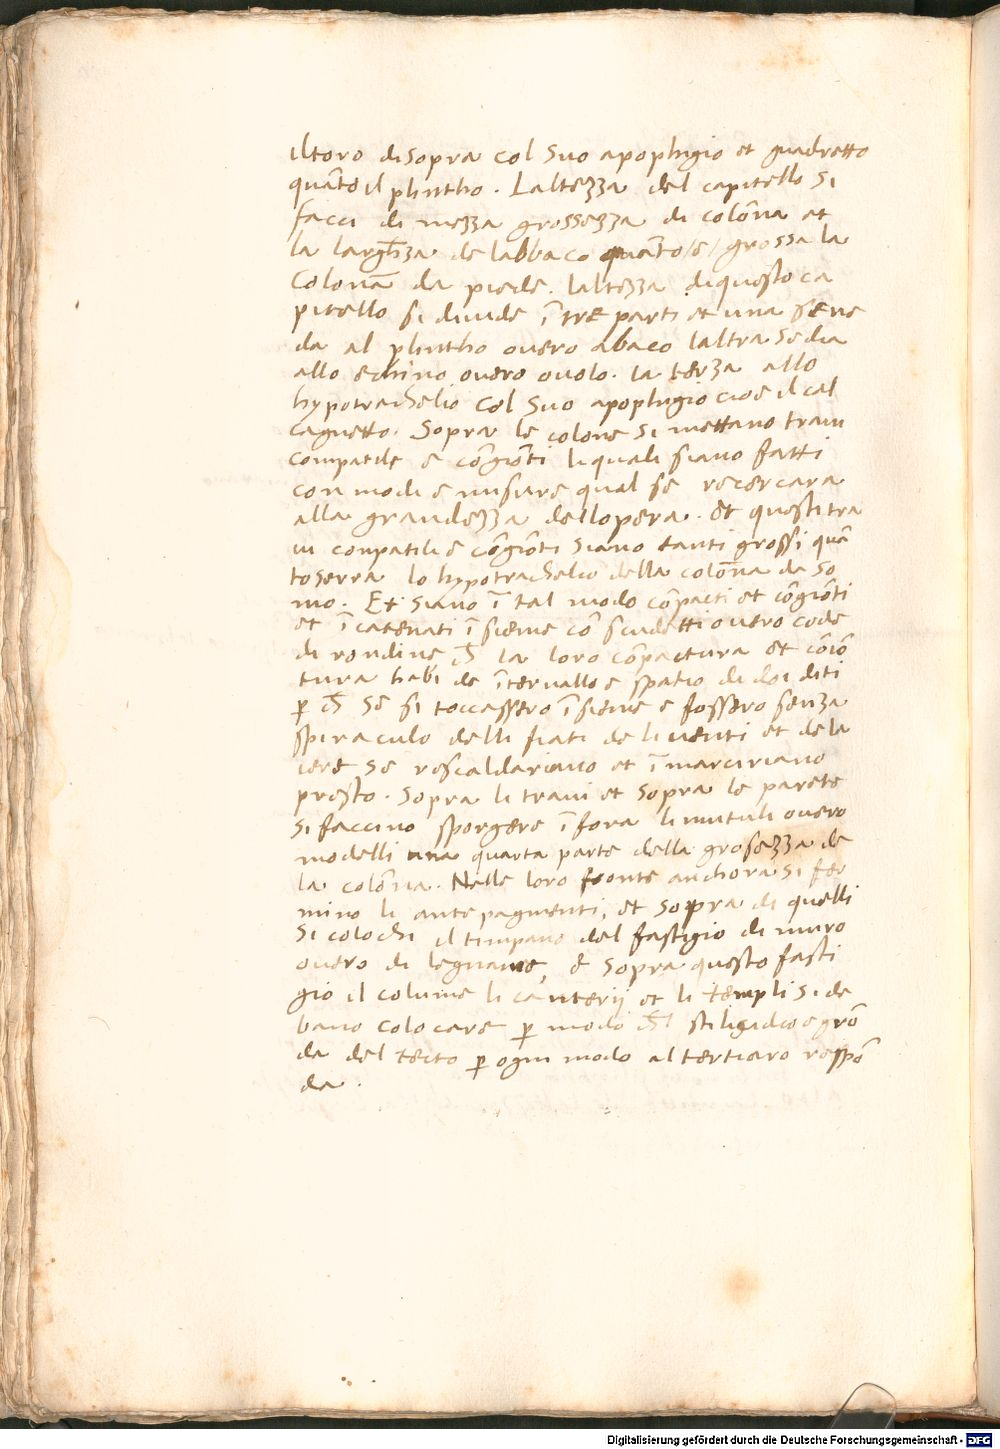 il toro di sopra col suo apophigio et quadretto
quāto il plintho. Laltezza del capitello si
facci di mezza grossezza di colōna et
la larghza de labbaco quāto /e/ grossa la
Colonā da piede. laltezza di questo ca
pitello si diuide ī tre parti et una sene
da al plintho overo abaco laltra se dia
allo echino overo ovolo. la terza allo
hypotrachelio col suo apophigio cioe il cal
cagnetto. Sopra le colone si mettano traui
compatile e cōgiōti li quali siano fatti
con modi e misure qual se recercara
alla grandezza dellopera. et questi tra
ui conpatili e cōgiōti siano tanti grossi quā
to serra lo hypotrachelio della colōna da so
mo. Et siano ī tal modo cōpacti et cōgiōti
et ī catenati ī sieme cō scudetti overo code
di rondine la loro cōpactura et cōiō
tura habi de ītervallo e spatio di doi diti
se si toccassero īsieme e fossero senza
spiraculo delli fiati de li venti et de la
iere se rescaldariano et ī marciriano
presto. Sopra li traui et sopra le parete
si faccino sporgere ī fora li mutuli overo
modelli una quarta parte della grosezza de
la colōna. Nelle loro fronte anchora si fer
mino li antepagmenti, et sopra di quelli
si colochi il timpano del fastigio di muro
overo di legname, e sopra questo fasti
gio il colume li canterij et li templi si de
bano colocare modo stiligidio e grō
da del tecto ogni modo al tertiaro respō
da.
Digitalisierung gefördert durch die Deutsche Forschungsgemeinschaft - DFG